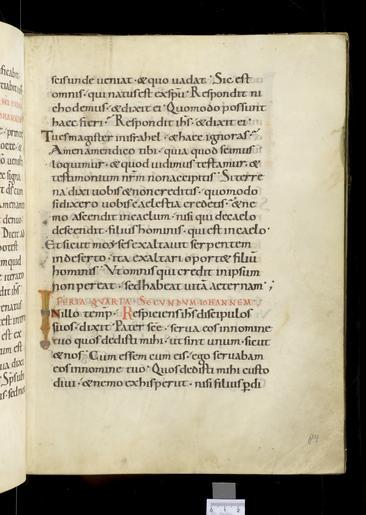 scis unde ueniat · & quo uadat · Sic est
omnis · qui natus est ex spu · Respondit ni
chodemus · & dixit ei · Quomodo possunt
haec fieri · Respondit ihs · & dixit ei ·
Tu es magister in israhel · & haec ignoras ·
Amen amen dico tibi · quia quod scimus
loquimur · & quod uidimus testamur · &
testimonium nrm non accipitis · Si terre
na dixi uobis & non creditis · quomodo
si dixero uobis caelestia credetis · & ne
mo ascendit in caelum · nisi qui de caelo
descendit · filius hominis · qui est in caelo ·
Et sicut moses exaltauit serpentem
in deserto · ita exaltari oport& filiu
hominis · Ut omnis qui credit in ipsum
non pereat · sed habeat uita aeternam ;
FERIA QUARTA · SECUNDUM IOHANNEM ·
IN illo temp · Respiciens ihs discipulos
suos · dixit · Pater sce · serua eos in nomine
tuo quos dedisti mihi · ut sint unum · sicut
& nos · Cum essem cum eis · ego seruabam
eos in nomine tuo · Quos dedisti mihi custo
diui · & nemo ex his periit · nisi filius pdi
84